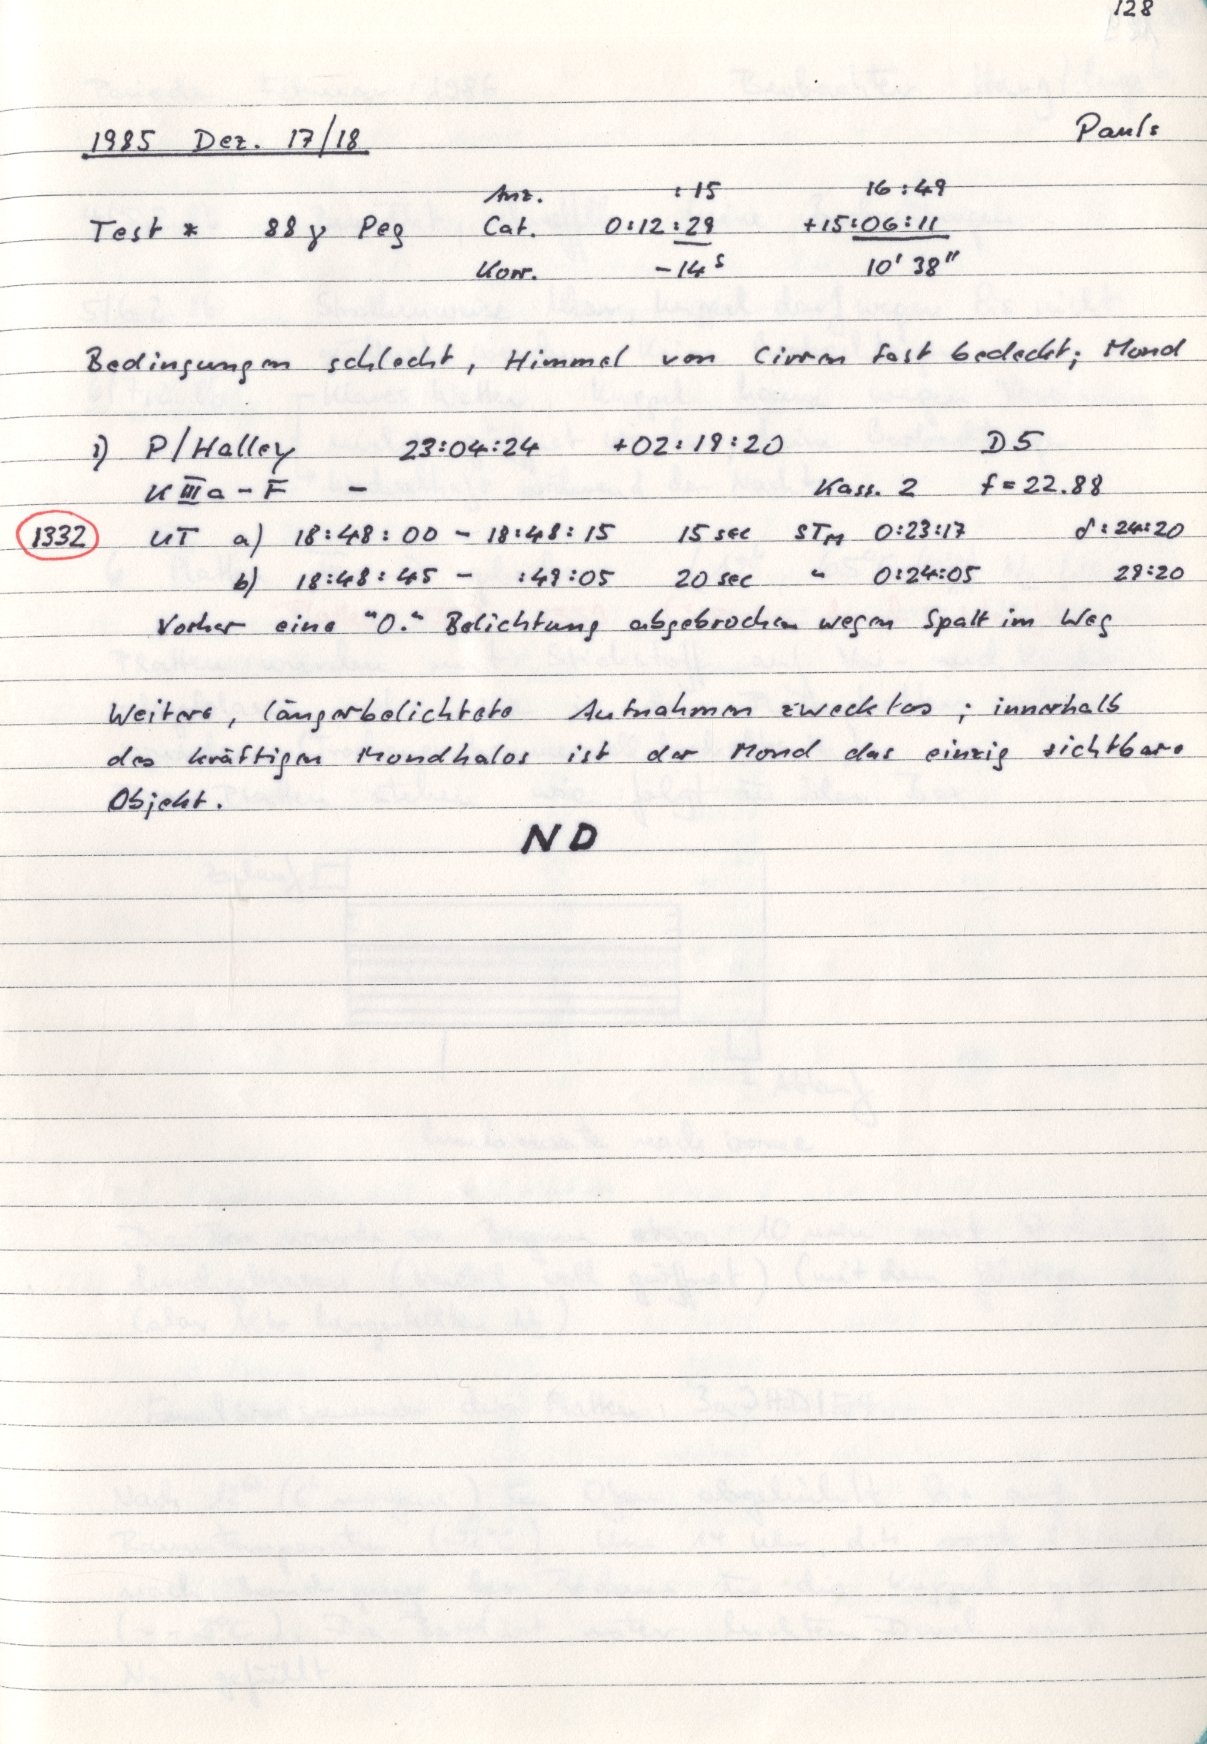 128
1985 Dez. 17/18 Pauls
Anz. :15 16:49
Test * 88 γ Peg Cat. 0:12:29 +15:06:11
Korr. -14ˢ 10' 38"
Bedingungen schlecht, Himmel von Cirren fast bedeckt; Mond
1) P/Halley 23:04:24 +02:19:20 D5
K IIIa-F - Kass. 2 f=22.88
1332 UT a) 18:48:00 - 18:48:15 15 sec STM 0:23:17 δ:24:20
b) 18:48:45 - :49:05 20 sec " 0:24:05 29:20
Vorher eine "0." Belichtung abgebrochen wegen Spalt im Weg
Weitere, längerbelichtete Aufnahmen zwecklos; innerhalb
des kräftigen Mondhalos ist der Mond das einzig sichtbare
Objekt.
ND